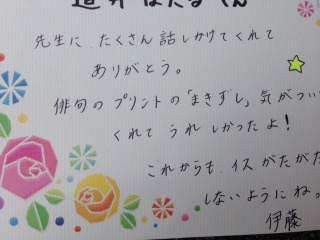 先生に たくさん 話しかけてくれて
ありがとう。
俳句のプリントの「まきずし」気がつい
くれて うれしかったよ！
これからも イスがたがた
しないようにね。
伊藤